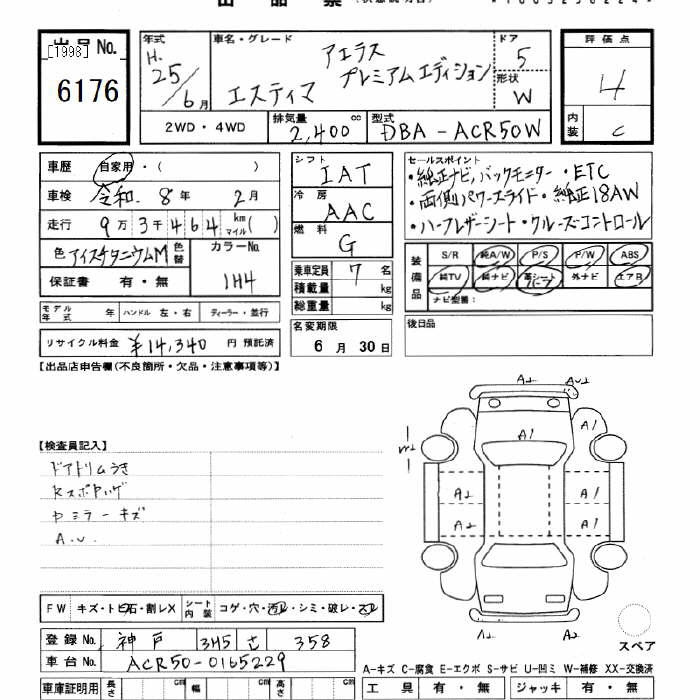 出品票
出品No.
[1998]
6176
年式
H.
25/6月
車名・グレード
アエラス
エスティマ プレミアムエディション
ドア
5
形状
W
評価点
4
内装
C
2WD・4WD
排気量
2,400 cc
型式
DBA-ACR50W
車歴 自家用・( )
車検 令和 8年 2月
走行 9万3千464 km マイル( )
色 アイスチタニウムM 色替
カラーNo.
1H4
保証書 有・無
シフト
IAT
冷房
AAC
燃料
G
乗車定員 7名
積載量 kg
総重量 kg
セールスポイント
・純正ナビ,バックモニター・ETC
・両側パワースライド・純正18AW
・ハーフレザーシート・クルーズコントロール
装備品
S/R 純A/W P/S P/W ABS
純TV 純ナビ 革シート ハーフ 外ナビ エアB
ナビ型番:
モデル年式 年 ハンドル 左・右 ディーラー・並行
リサイクル料金 ¥14,340 円 預託済
名変期限
6月30日
後日品
【出品店申告欄(不良箇所・欠品・注意事項等)】
【検査員記入】
ドアトリムうき
Rスポイラーハゲ
ドミラーキズ
A.U.
A2
AU2
A1
A1
W2
A2
A1
A2
A1
A2
A2
FW キズ・トビ石・割レX
シート内装 コゲ・穴・汚レ・シミ・破レ・スレ
登録No. 神戸 345 さ 358
車台No. ACR50-0165229
スペア
A-キズ C-腐食 E-エクボ S-サビ U-凹ミ W-補修 XX-交換済
車庫証明用 長さ cm 幅 cm 高さ cm
工具 有・無 ジャッキ 有・無